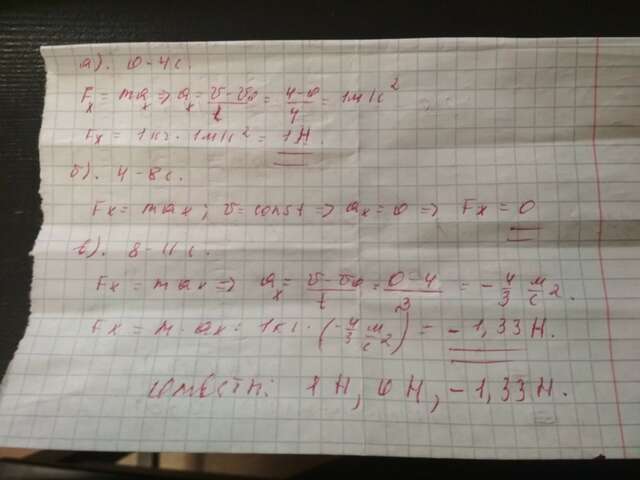 а). 0-4с.
Fx = max => ax = v-v₀/t = 4-0/4 = 1м/с²
Fx = 1кг · 1м/с² = 1Н.
б). 4-8с.
Fx = max; v = const => ax = 0 => Fx = 0
в). 8-11с.
Fx = max => ax = v-v₀/t = 0-4/3 = -4/3 м/с2.
Fx = max = 1кг · (-4/3 м/с2) = -1,33Н.
1Н, 0Н, -1,33Н.